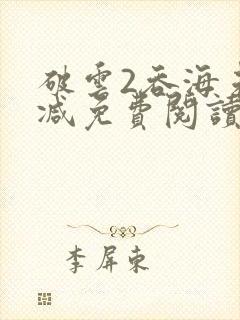 破雲2吞海未
減免費閱讀
李屏東